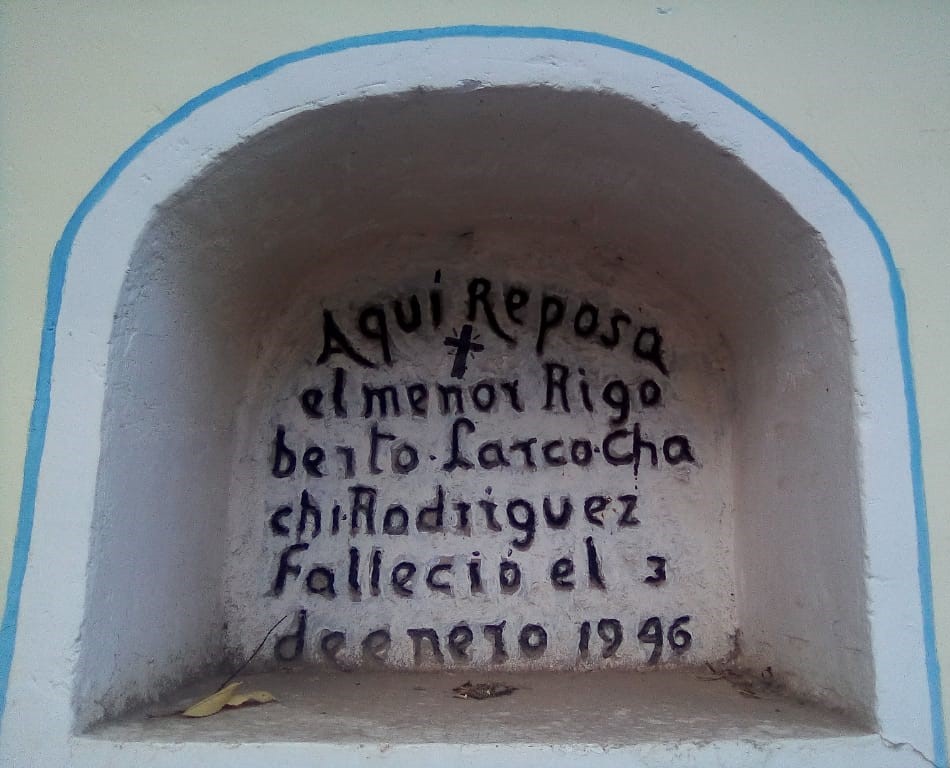 Aquí Reposa
el menor Rigo
berto. Larco. Cha
chi. Rodriguez
Falleció el 3
de enero 1946